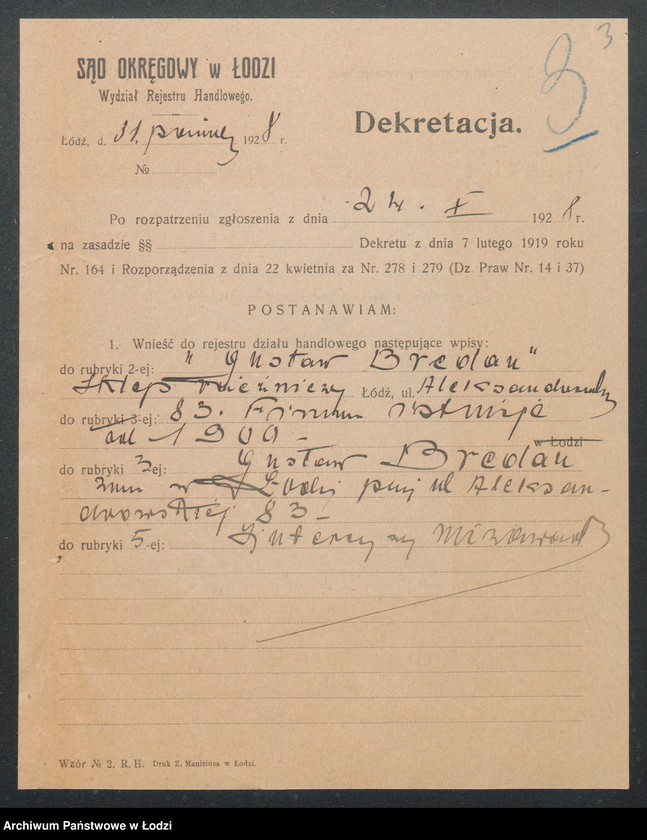 3
3
SĄD OKRĘGOWY w ŁODZI
Wydział Rejestru Handlowego.
Łódź, d. 31. 1928 r.
Dekretacja.
№
Po rozpatrzeniu zgłoszenia z dnia 24. X 1928 r.
na zasadzie §§ Dekretu z dnia 7 lutego 1919 roku
Nr. 164 i Rozporządzenia z dnia 22 kwietnia za Nr. 278 i 279 (Dz. Praw Nr. 14 i 37)
POSTANAWIAM:
1. Wnieść do rejestru działu handlowego następujące wpisy:
do rubryki 2-ej: "Gustaw Bredau"
Sklep rzeźniczy Łódź, ul. Aleksandrowska
do rubryki 3-ej: 83. Firma istnieje
od 1900 -
w Łodzi
do rubryki 3-ej: Gustaw Bredau
zam w Łodzi przy ul Aleksan-
drowskiej 83 -
do rubryki 5-ej: Intercyzy nie zawarł
Wzór № 2. R. H. Druk Z. Manitiusa w Łodzi.
Archiwum Państwowe w Łodzi